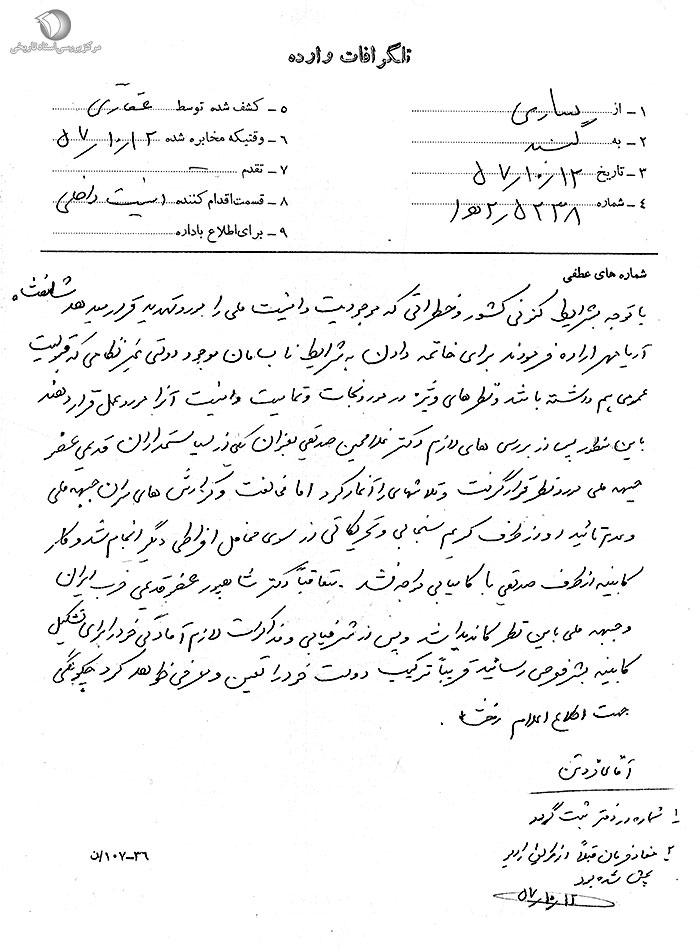 مرکز بررسی اسناد تاریخی
تلگرافات وارده
۱ـ از ساری
۲ـ به گنبد
۳ـ تاریخ ۵۷/۱۰/۱۲
۴ـ شماره ۲/۵۲۳۸هـ۱
۵ـ کشف شده توسط غفاری
۶ـ وقتیکه مخابره شده ۵۷/۱۰/۱۲
۷ـ تقدم ـ
۸ـ قسمت اقدام کننده امنیت داخلی
۹ـ برای اطلاع باداره
شماره های عطفی
با توجه بشرایط کنونی کشور و خطراتی که موجودیت و امنیت ملی را مورد تهدید قرار میدهد شاهنشاه
آریامهر اراده فرمودند برای خاتمه دادن به شرایط نابسامان موجود دولتی غیر نظامی که قبولیت
عمومی هم داشته باشد و نظرهای ویژه در مورد نجات و تمامیت و امنیت آنرا مورد عمل قرار دهند
باین منظور پس از بررسی های لازم دکتر غلامحسین صدیقی بعنوان یکی از سیاستمداران قدیمی عضو
جبهه ملی مورد نظر قرار گرفت و تلاشهای را آغاز کرد اما مخالفت و گزارش های سران جبهه ملی
و عدم تائید او از طرف کریم سنجابی و تحریکاتی از سوی محافل افراطی دیگر انجام شد و کار
کابینه از طرف صدیقی با کامیابی مواجه نشد . متعاقباً دکتر شاهپور عضو قدیمی حزب ایران
و جبهه ملی باین نظر کاندید شد و پس از شرفیابی و مذاکرات لازم آمادگی خود را برای تشکیل
کابینه بشرفعرض رسانید قریباً ترکیب دولت خود را تعیین و معرفی خواهد کرد چگونگی
جهت اطلاع اعلام
آقای
۱ شماره در دفتر ثبت گردد
۲ قبلاً از
پخش شده بود
۵۷/۱۰/۱۲
۳۶ـ۱۰۷/ن